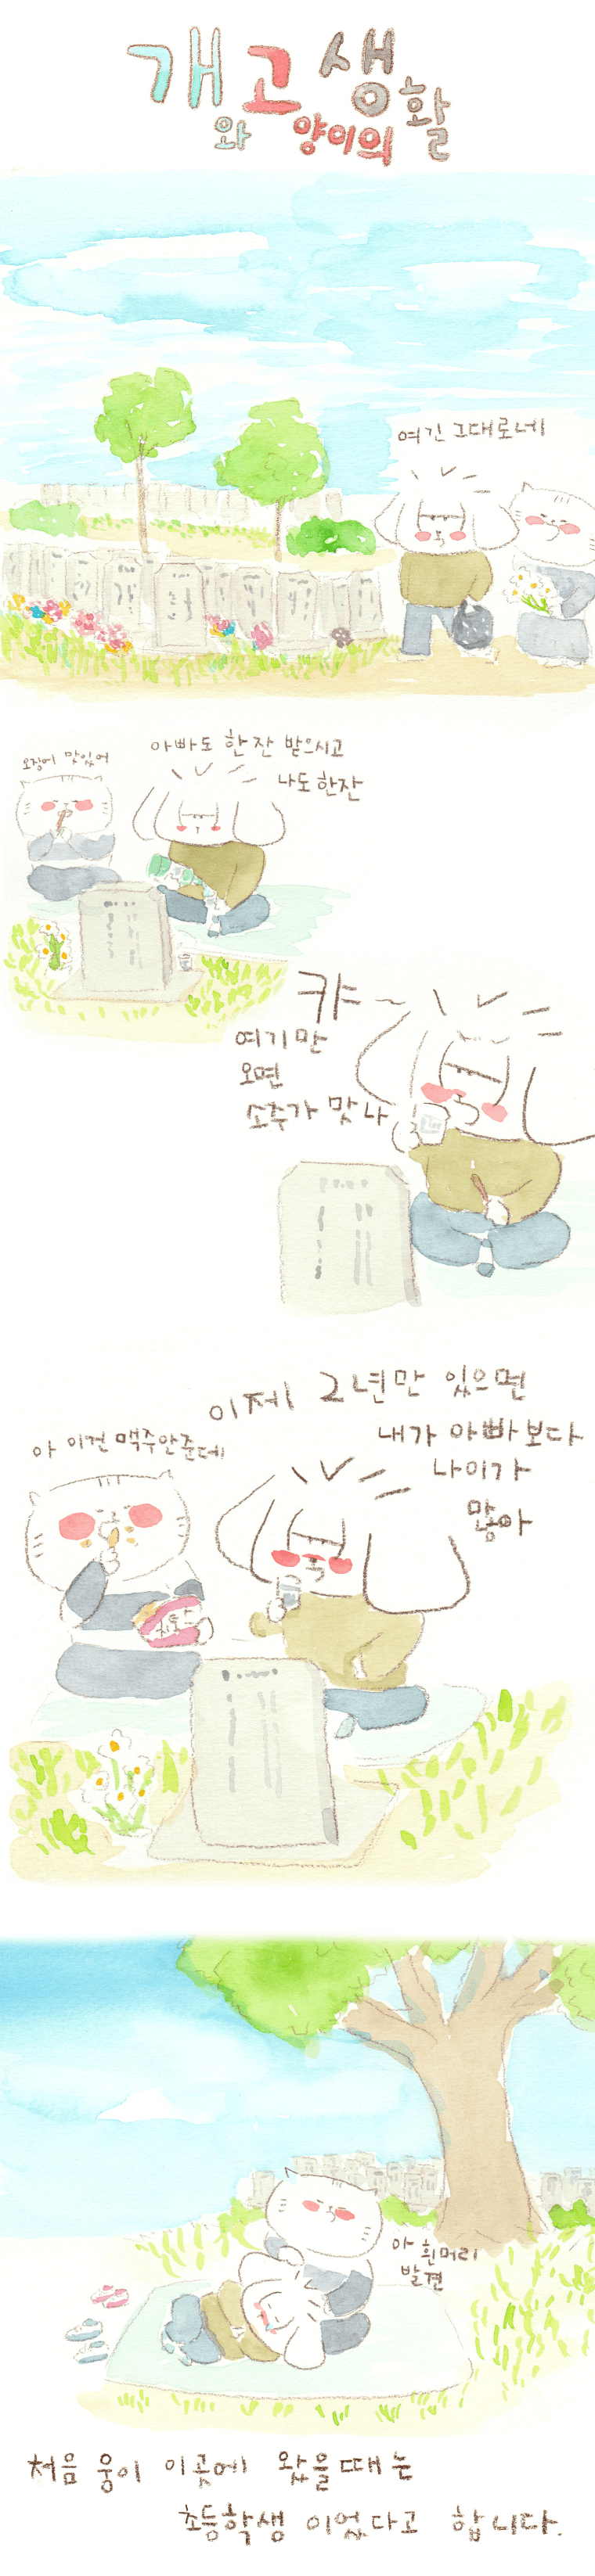 개와 고양이의 생활
여긴 그대로네
오징어 맛있어
아빠도 한잔 받으시고
나도 한잔
캬~
여기만
오면
소주가 맛나
이제 2년만 있으면
내가 아빠보다
나이가
많아
아 이건 맥주안준데
아 흰머리
발견
처음 웅이 이곳에 왔을때는
초등학생 이었다고 합니다.